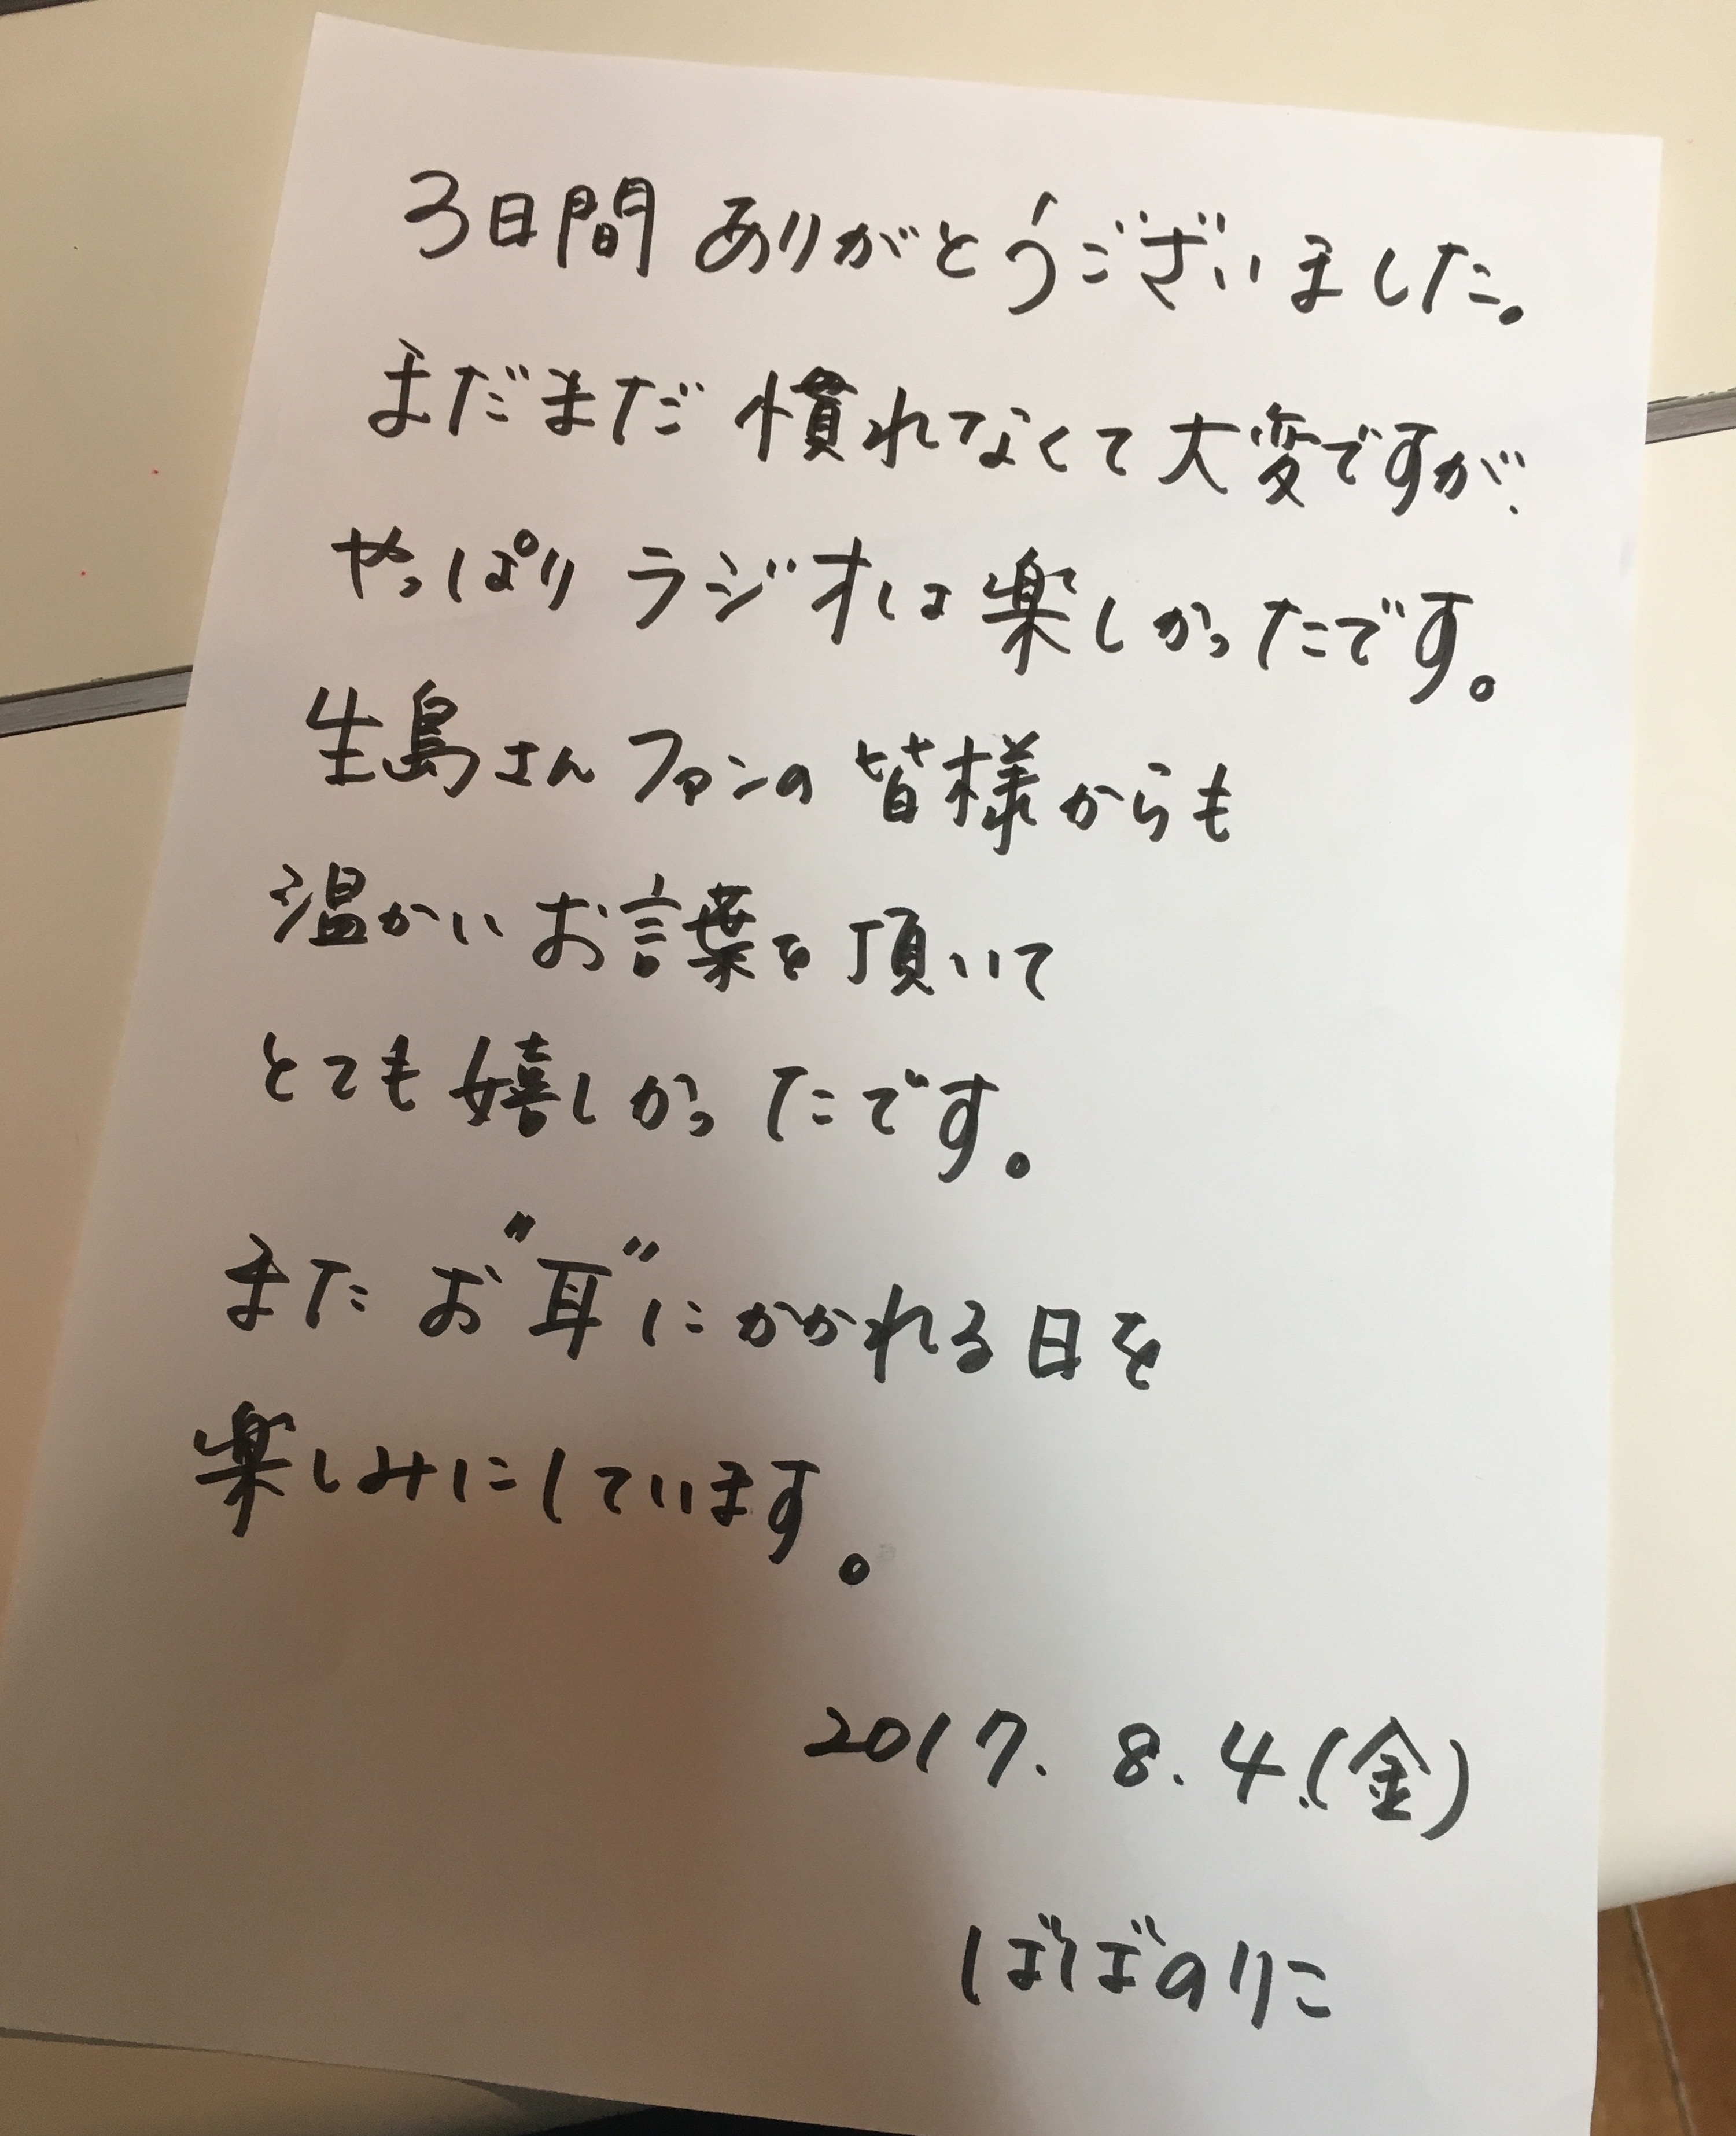 3日間 ありがとうございました。
まだまだ 慣れなくて大変ですが、
やっぱり ラジオは楽しかったです。
生島さんファンの 皆様からも
温かい お言葉を 頂いて
とても 嬉しかったです。
また お"耳"にかかれる日を
楽しみにしています。
2017. 8. 4.(金)
ばばのりこ